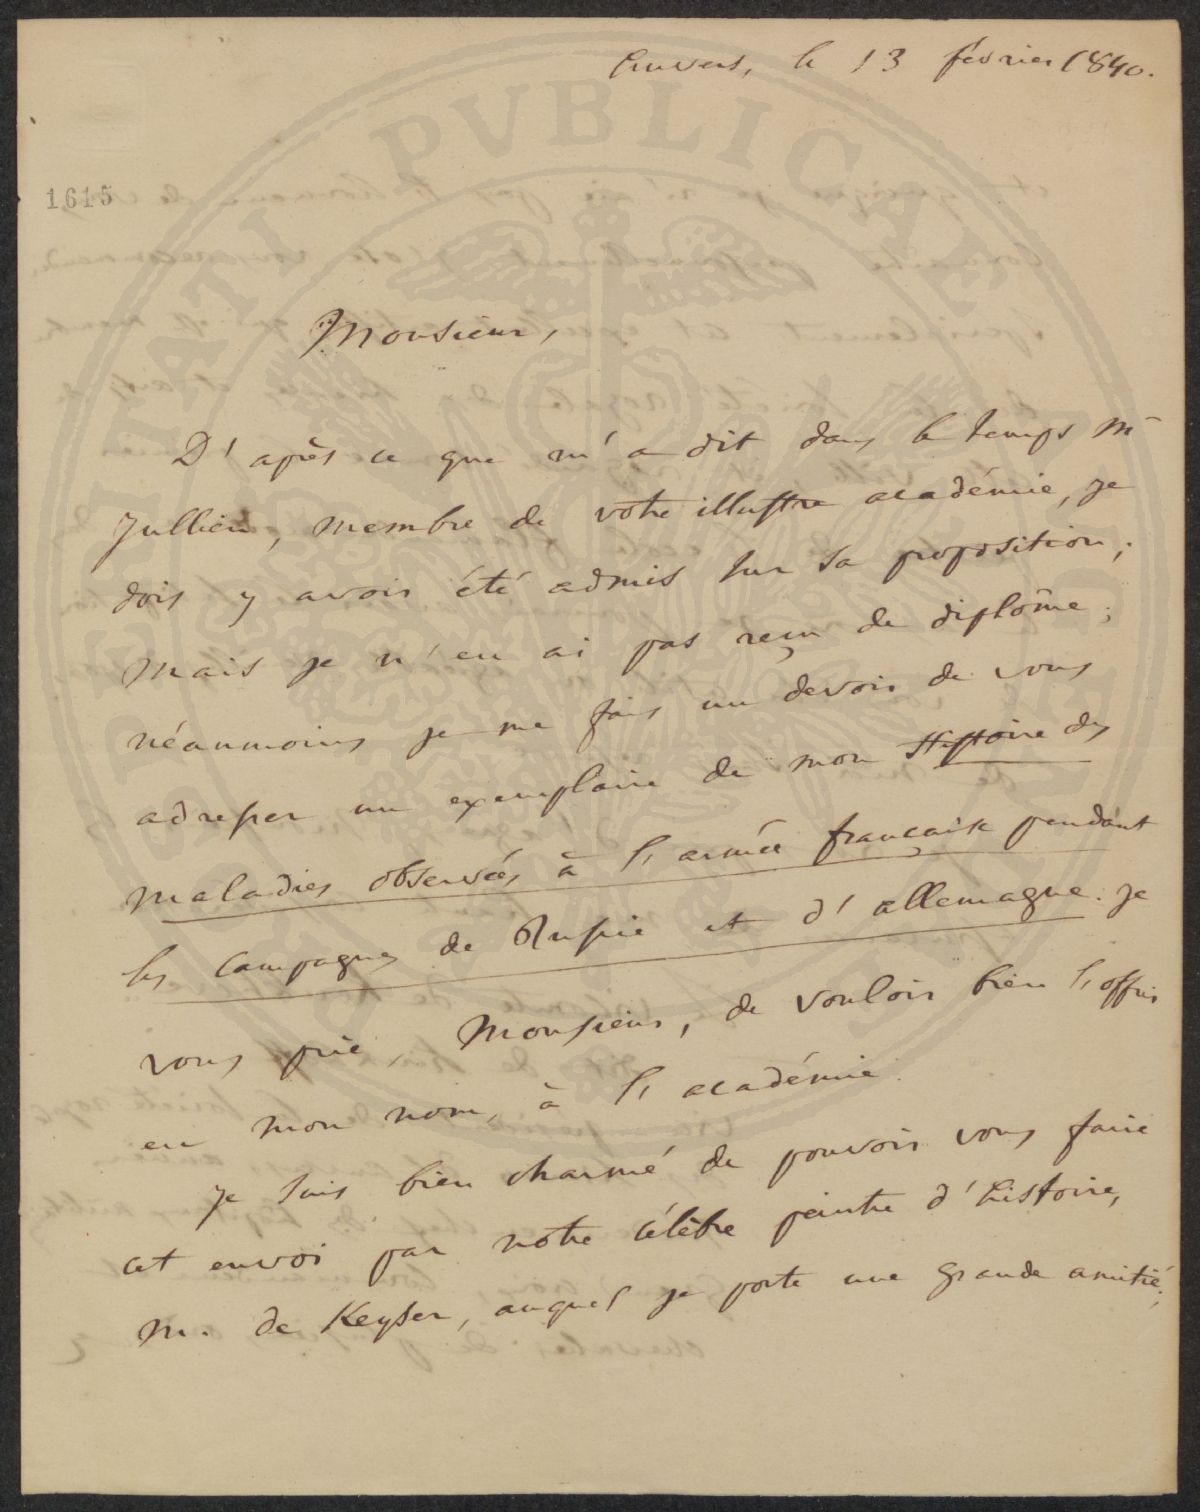 Anvers, le 13 février 1840.
PVBLICAE
1615
Monsieur,
D'après ce que m'a dit dans le temps Mr
Jullien, membre de votre illustre académie, je
dois y avoir été admis sur sa proposition;
mais je n'en ai pas reçu de diplôme;
néanmoins je me fais un devoir de vous
adresser un exemplaire de mon Histoire des
maladies observées à l'armée française pendant
les campagnes de Russie et d'allemagne. je
vous prie, Monsieur, de vouloir bien l'offrir
en mon nom, à l'académie.
je suis bien charmé de pouvoir vous faire
cet envoi par notre célèbre peintre d'histoire,
m. de Keyser, auquel je porte une grande amitié;